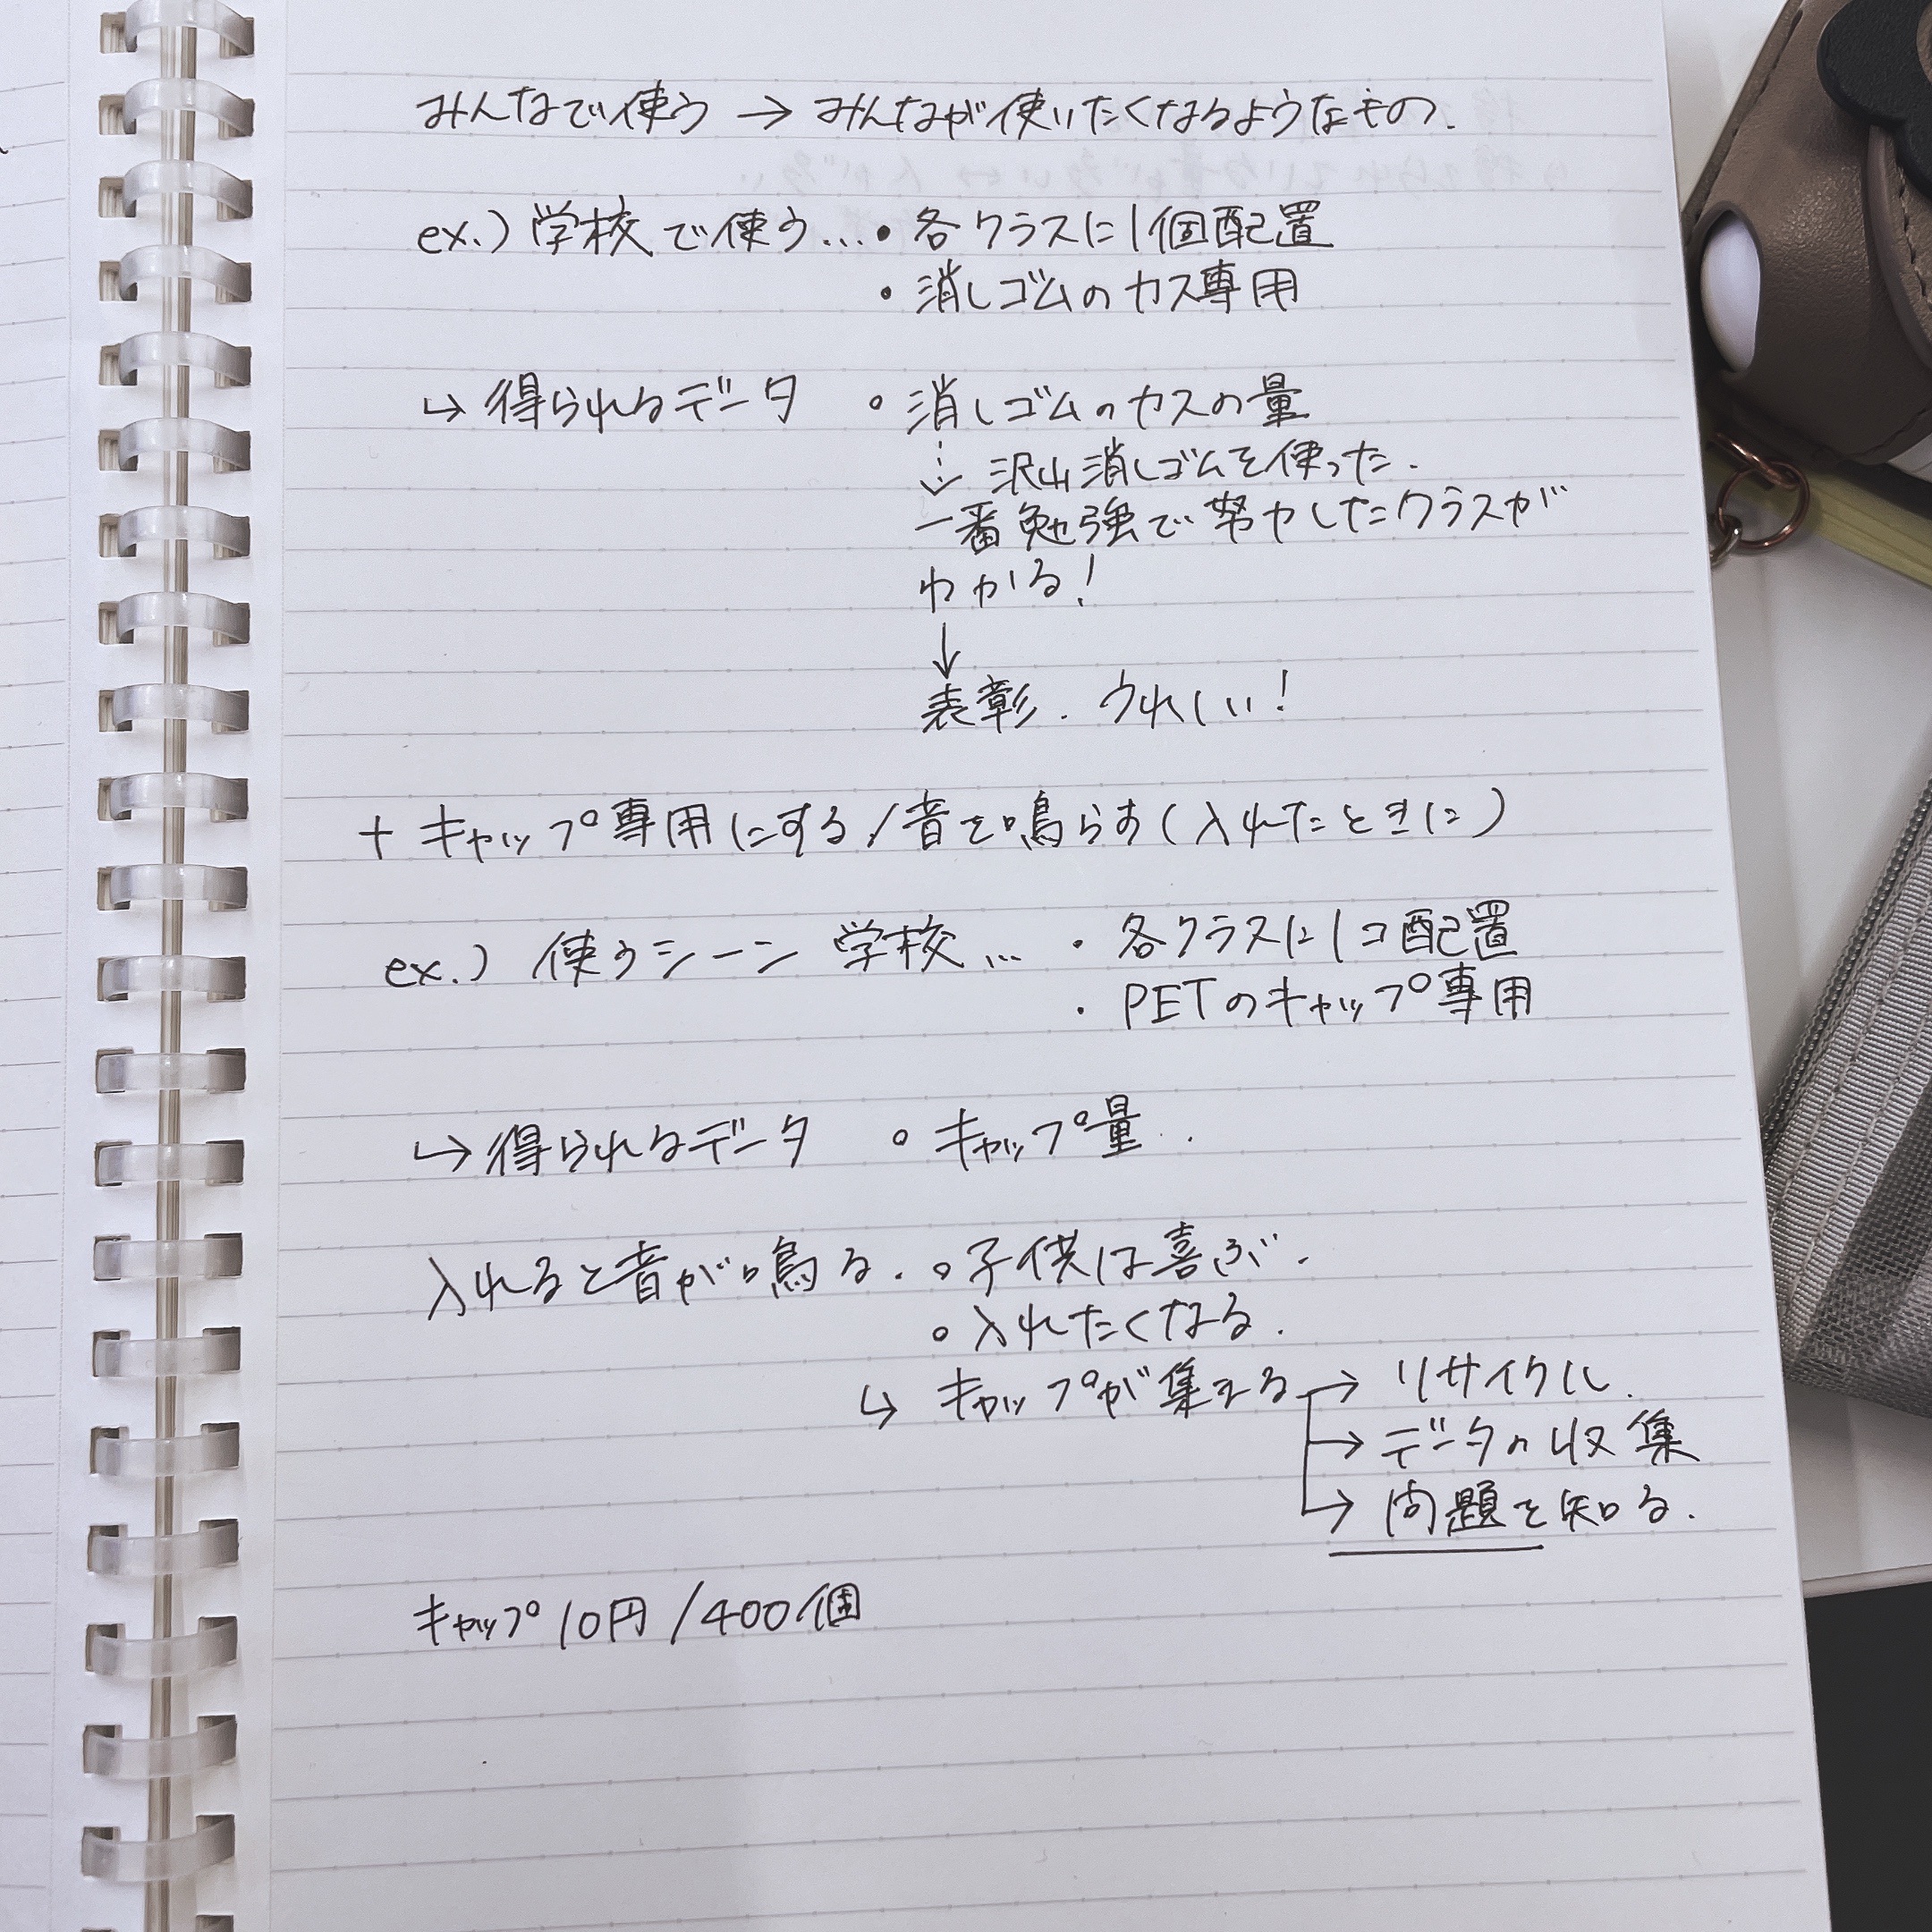 みんなで使う → みんなが使いたくなるようなもの.
ex.) 学校で使う… • 各クラスに1個配置
• 消しゴムのカス専用
↳ 得られるデータ ◦ 消しゴムのカスの量
沢山消しゴムを使った.
一番勉強で努力したクラスが
わかる!
↓
表彰. うれしい!
+ キャップ専用にする/音を鳴らす(入れたときに)
ex.) 使うシーン 学校… ・各クラスに1コ配置
・PETのキャップ専用
↳ 得られるデータ ◦ キャップ量..
入れると音が鳴る. ◦子供は喜ぶ.
◦入れたくなる.
↳ キャップが集まる → リサイクル.
→ データの収集
→ 問題を知る.
キャップ10円/400個